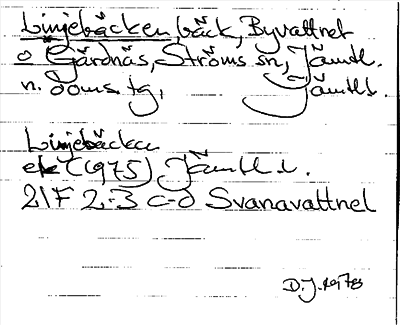 Linjebäcken, bäck, Byvattnet
o Gärdnäs, Ströms sn, Jämtl.
n. doms. tg, Jämtl.
Linjebäcken
ek (1975) Jämtl l.
21F 2-3 c-d Svanavattnet
D.J.